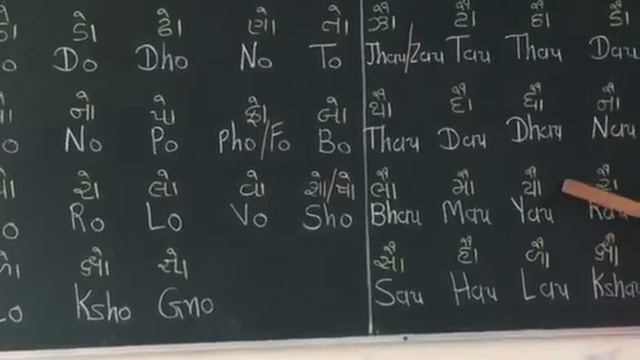 ડો ઢો ણો તો ઝૌ ટૌ ઠૌ ડૌ
Do Dho No To Jhau/Zau Tau Thau Dau
નો પો ફો બો થૌ દૌ ધૌ નૌ
No Po Pho/Fo Bo Thau Dau Dhau Nau
રો લો વો શો/ષો ભૌ મૌ યૌ રૌ
Ro Lo Vo Sho Bhau Mau Yau
ળો ક્ષો જ્ઞો સૌ હૌ ળૌ ક્ષૌ
Lo Ksho Gno Sau Hau Lau Kshau